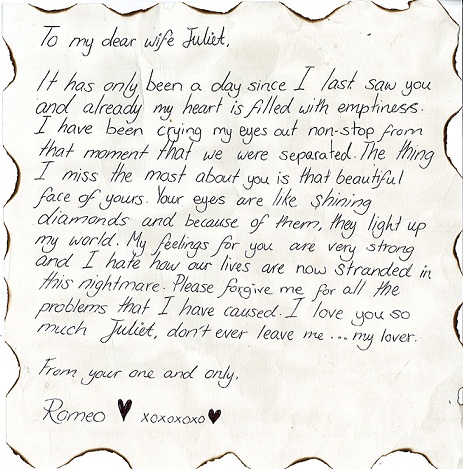 To my dear wife Juliet,
It has only been a day since I last saw you
and already my heart is filled with emptiness.
I have been crying my eyes out non-stop from
that moment that we were separated. The thing
I miss the most about you is that beautiful
face of yours. Your eyes are like shining
diamonds and because of them, they light up
my world. My feelings for you are very strong
and I hate how our lives are now stranded in
this nightmare. Please forgive me for all the
problems that I have caused. I love you so
much Juliet, don't ever leave me... my lover.
From your one and only,
Romeo ♥ xoxoxoxo ♥